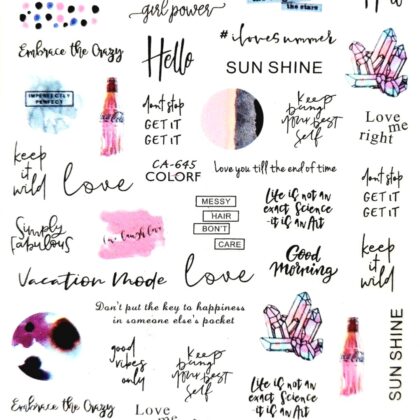 girl power
the stars
Embrace the Crazy
Hello
#ilovesummer
SUN SHINE
IMPERFECTLY
PERFECT
dont stop
GET IT
GET IT
Keep
being
your best
self
Love
me
right
keep
it
wild
love
CA-645
COLORF
Love you till the end of time
dont stop
GET IT
GET IT
Simply
fabulous
live laugh love
MESSY
HAIR
BON'T
CARE
Life is not an
exact Science
it is an Art
Good
Morning
keep
it
wild
Vacation Mode
love
Don't put the key to happiness
in someone else's pocket
SUN SHINE
good
vibes
only
Keep
being
your best
self
Life is not an
exact Science
it is an Art
Embrace the Crazy
Love
me